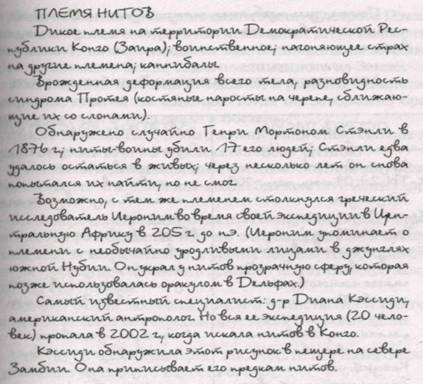 ПЛЕМЯ НИТОВ
Дикое племя на территории Демократической Рес-
публики Конго (Заира); воинственное; нагоняющее страх
на другие племена; каннибалы.
Врожденная деформация всего тела, разновидность
синдрома Протея (костяные наросты на черепе, сближаю-
щие их со слонами).
Обнаружено случайно Генри Мортоном Стэнли в
1876 г; ниты-воины убили 17 его людей; Стэнли едва
удалось остаться в живых; через несколько лет он снова
попытался их найти, но не смог.
Возможно, с тем же племенем столкнулся греческий
исследователь Иероним во время своей экспедиции в Цен-
тральную Африку в 205 г. до н.э. (Иероним упоминает о
племени с необычайно уродливыми лицами в джунглях
южной Нубии. Он украл у нитов прозрачную сферу, которая
позже использовалась оракулом в Дельфах.)
Самый известный специалист: д-р Диана Кэссиди,
американский антрополог. Но вся ее экспедиция (20 чело-
век) пропала в 2002 г, когда искала нитов в Конго.
Кэссиди обнаружила этот рисунок в пещере на севере
Замбии. Она приписывает его предкам нитов.